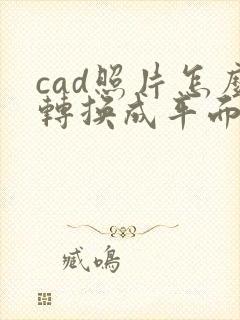 cad照片怎麼
轉換成平面
臧鳴